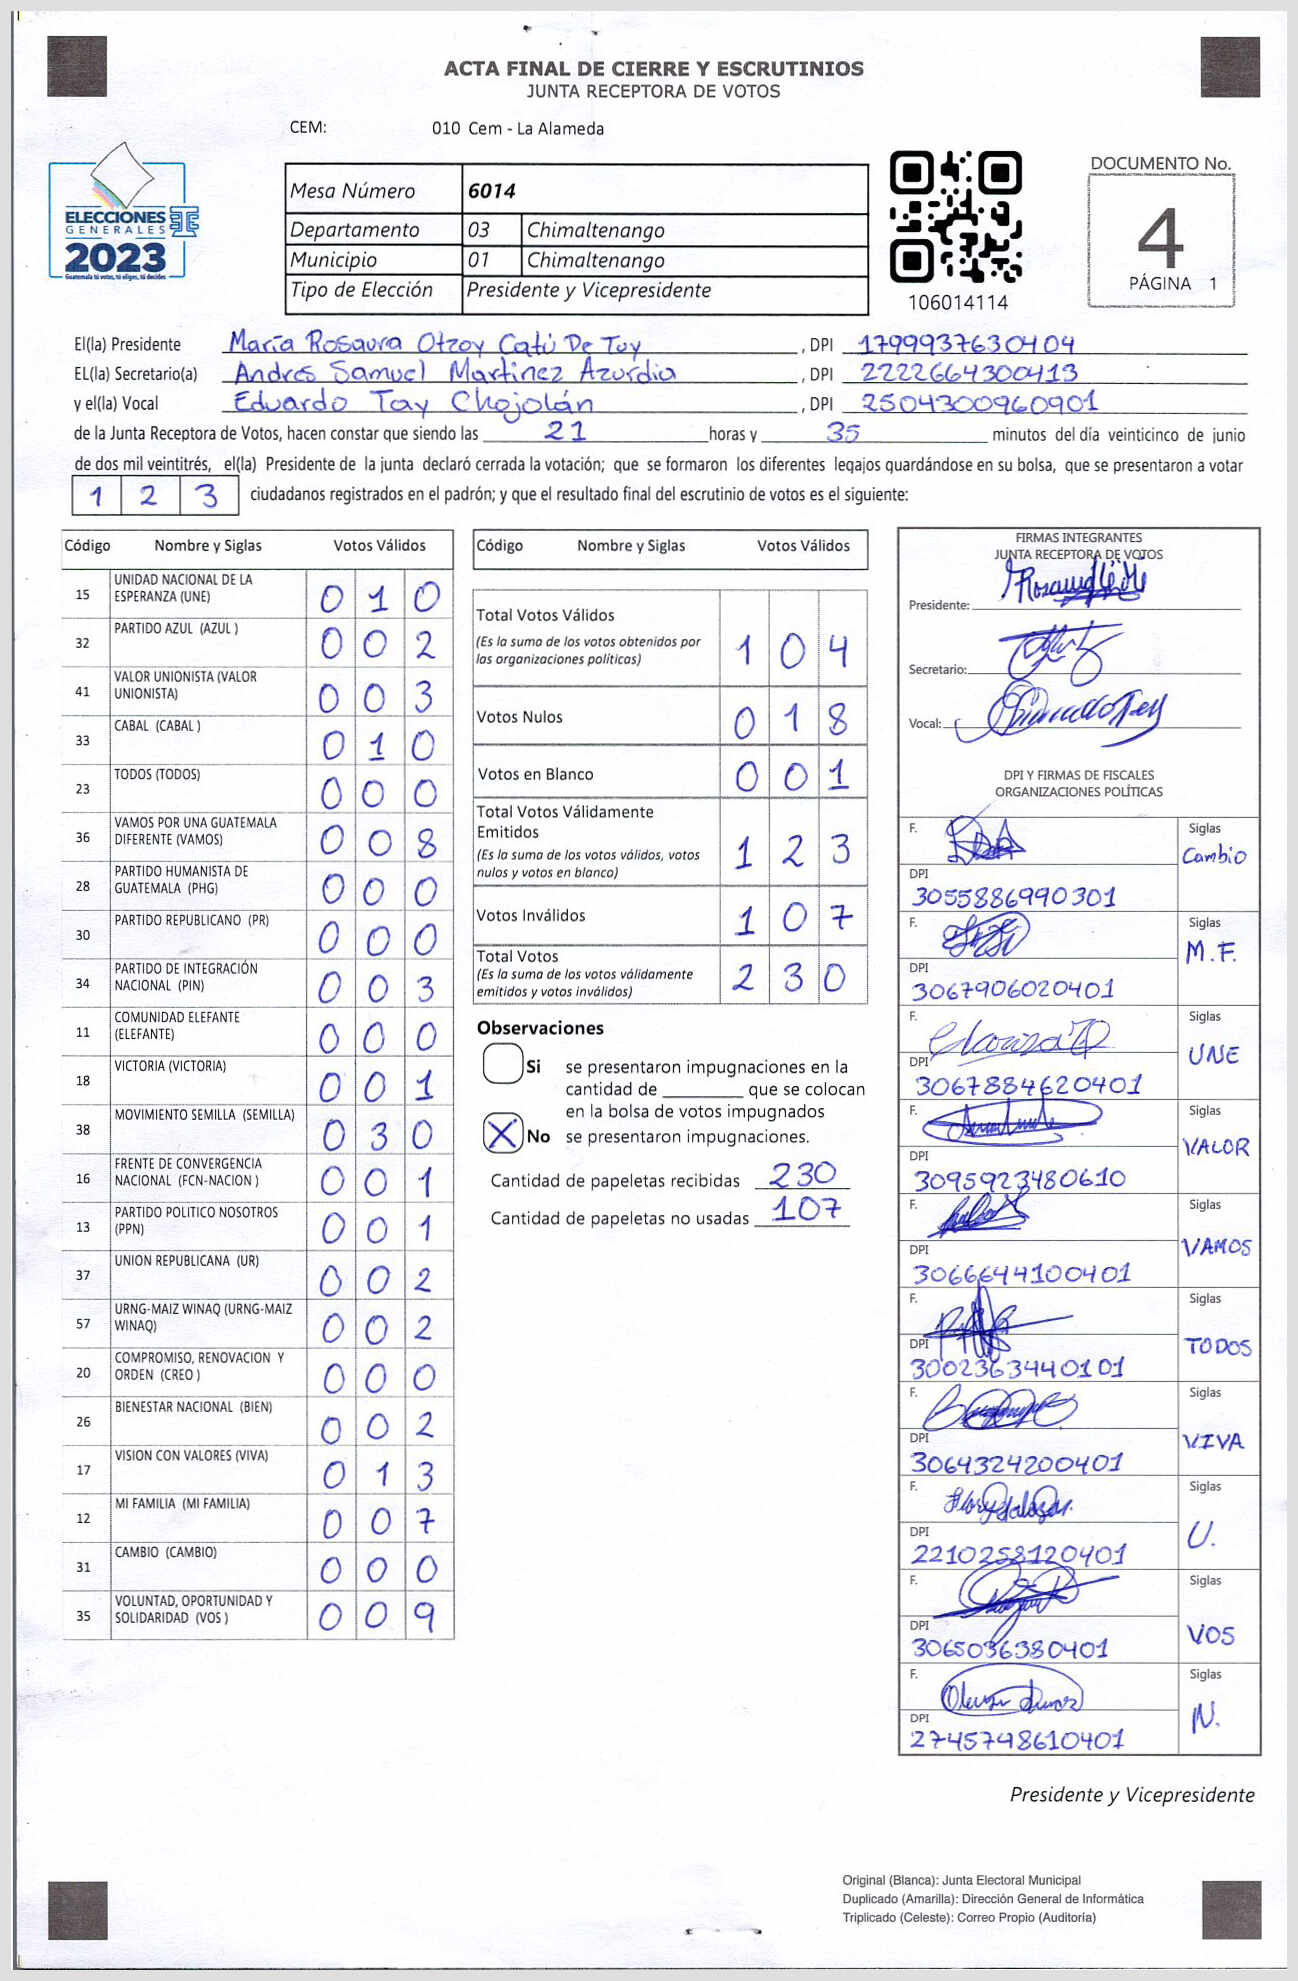 ACTA FINAL DE CIERRE Y ESCRUTINIOS
JUNTA RECEPTORA DE VOTOS
CEM: 010 Cem - La Alameda
ELECCIONES
GENERALES
2023
Guatemala tú votas, tú eliges, tú decides
Mesa Número 6014
Departamento 03 Chimaltenango
Municipio 01 Chimaltenango
Tipo de Elección Presidente y Vicepresidente
106014114
DOCUMENTO No.
4
PÁGINA 1
El(la) Presidente María Rosaura Otzoy Catú De Tuy, DPI 1799937630404
EL(la) Secretario(a) Andres Samuel Martinez Azurdia, DPI 2222664300413
y el(la) Vocal Eduardo Tay Chojolán, DPI 2504300960901
de la Junta Receptora de Votos, hacen constar que siendo las 21 horas y 35 minutos del día veinticinco de junio
de dos mil veintitrés, el(la) Presidente de la junta declaró cerrada la votación; que se formaron los diferentes legajos guardándose en su bolsa, que se presentaron a votar
1 2 3 ciudadanos registrados en el padrón; y que el resultado final del escrutinio de votos es el siguiente:
Código Nombre y Siglas Votos Válidos
15 UNIDAD NACIONAL DE LA ESPERANZA (UNE) 0 1 0
32 PARTIDO AZUL (AZUL ) 0 0 2
41 VALOR UNIONISTA (VALOR UNIONISTA) 0 0 3
33 CABAL (CABAL ) 0 1 0
23 TODOS (TODOS) 0 0 0
36 VAMOS POR UNA GUATEMALA DIFERENTE (VAMOS) 0 0 8
28 PARTIDO HUMANISTA DE GUATEMALA (PHG) 0 0 0
30 PARTIDO REPUBLICANO (PR) 0 0 0
34 PARTIDO DE INTEGRACIÓN NACIONAL (PIN) 0 0 3
11 COMUNIDAD ELEFANTE (ELEFANTE) 0 0 0
18 VICTORIA (VICTORIA) 0 0 1
38 MOVIMIENTO SEMILLA (SEMILLA) 0 3 0
16 FRENTE DE CONVERGENCIA NACIONAL (FCN-NACION ) 0 0 1
13 PARTIDO POLITICO NOSOTROS (PPN) 0 0 1
37 UNION REPUBLICANA (UR) 0 0 2
57 URNG-MAIZ WINAQ (URNG-MAIZ WINAQ) 0 0 2
20 COMPROMISO, RENOVACION Y ORDEN (CREO ) 0 0 0
26 BIENESTAR NACIONAL (BIEN) 0 0 2
17 VISION CON VALORES (VIVA) 0 1 3
12 MI FAMILIA (MI FAMILIA) 0 0 7
31 CAMBIO (CAMBIO) 0 0 0
35 VOLUNTAD, OPORTUNIDAD Y SOLIDARIDAD (VOS ) 0 0 9
Código Nombre y Siglas Votos Válidos
Total Votos Válidos
(Es la suma de los votos obtenidos por
las organizaciones políticas) 1 0 4
Votos Nulos 0 1 8
Votos en Blanco 0 0 1
Total Votos Válidamente
Emitidos
(Es la suma de los votos válidos, votos
nulos y votos en blanco) 1 2 3
Votos Inválidos 1 0 7
Total Votos
(Es la suma de los votos válidamente
emitidos y votos inválidos) 2 3 0
Observaciones
Si se presentaron impugnaciones en la
cantidad de ________ que se colocan
en la bolsa de votos impugnados
X No se presentaron impugnaciones.
Cantidad de papeletas recibidas 230
Cantidad de papeletas no usadas 107
FIRMAS INTEGRANTES
JUNTA RECEPTORA DE VOTOS
Presidente:
Secretario:
Vocal:
DPI Y FIRMAS DE FISCALES
ORGANIZACIONES POLÍTICAS
F. Siglas Cambio
DPI 3055886990301
F. Siglas M.F.
DPI 3067906020401
F. Siglas UNE
DPI 3067884620401
F. Siglas VALOR
DPI 3095923480610
F. Siglas VAMOS
DPI 3066644100401
F. Siglas TODOS
DPI 3002363440101
F. Siglas VIVA
DPI 3064324200401
F. Siglas U.
DPI 2210258120401
F. Siglas VOS
DPI 3065036380401
F. Siglas N.
DPI 2745748610401
Presidente y Vicepresidente
Original (Blanca): Junta Electoral Municipal
Duplicado (Amarilla): Dirección General de Informática
Triplicado (Celeste): Correo Propio (Auditoría)